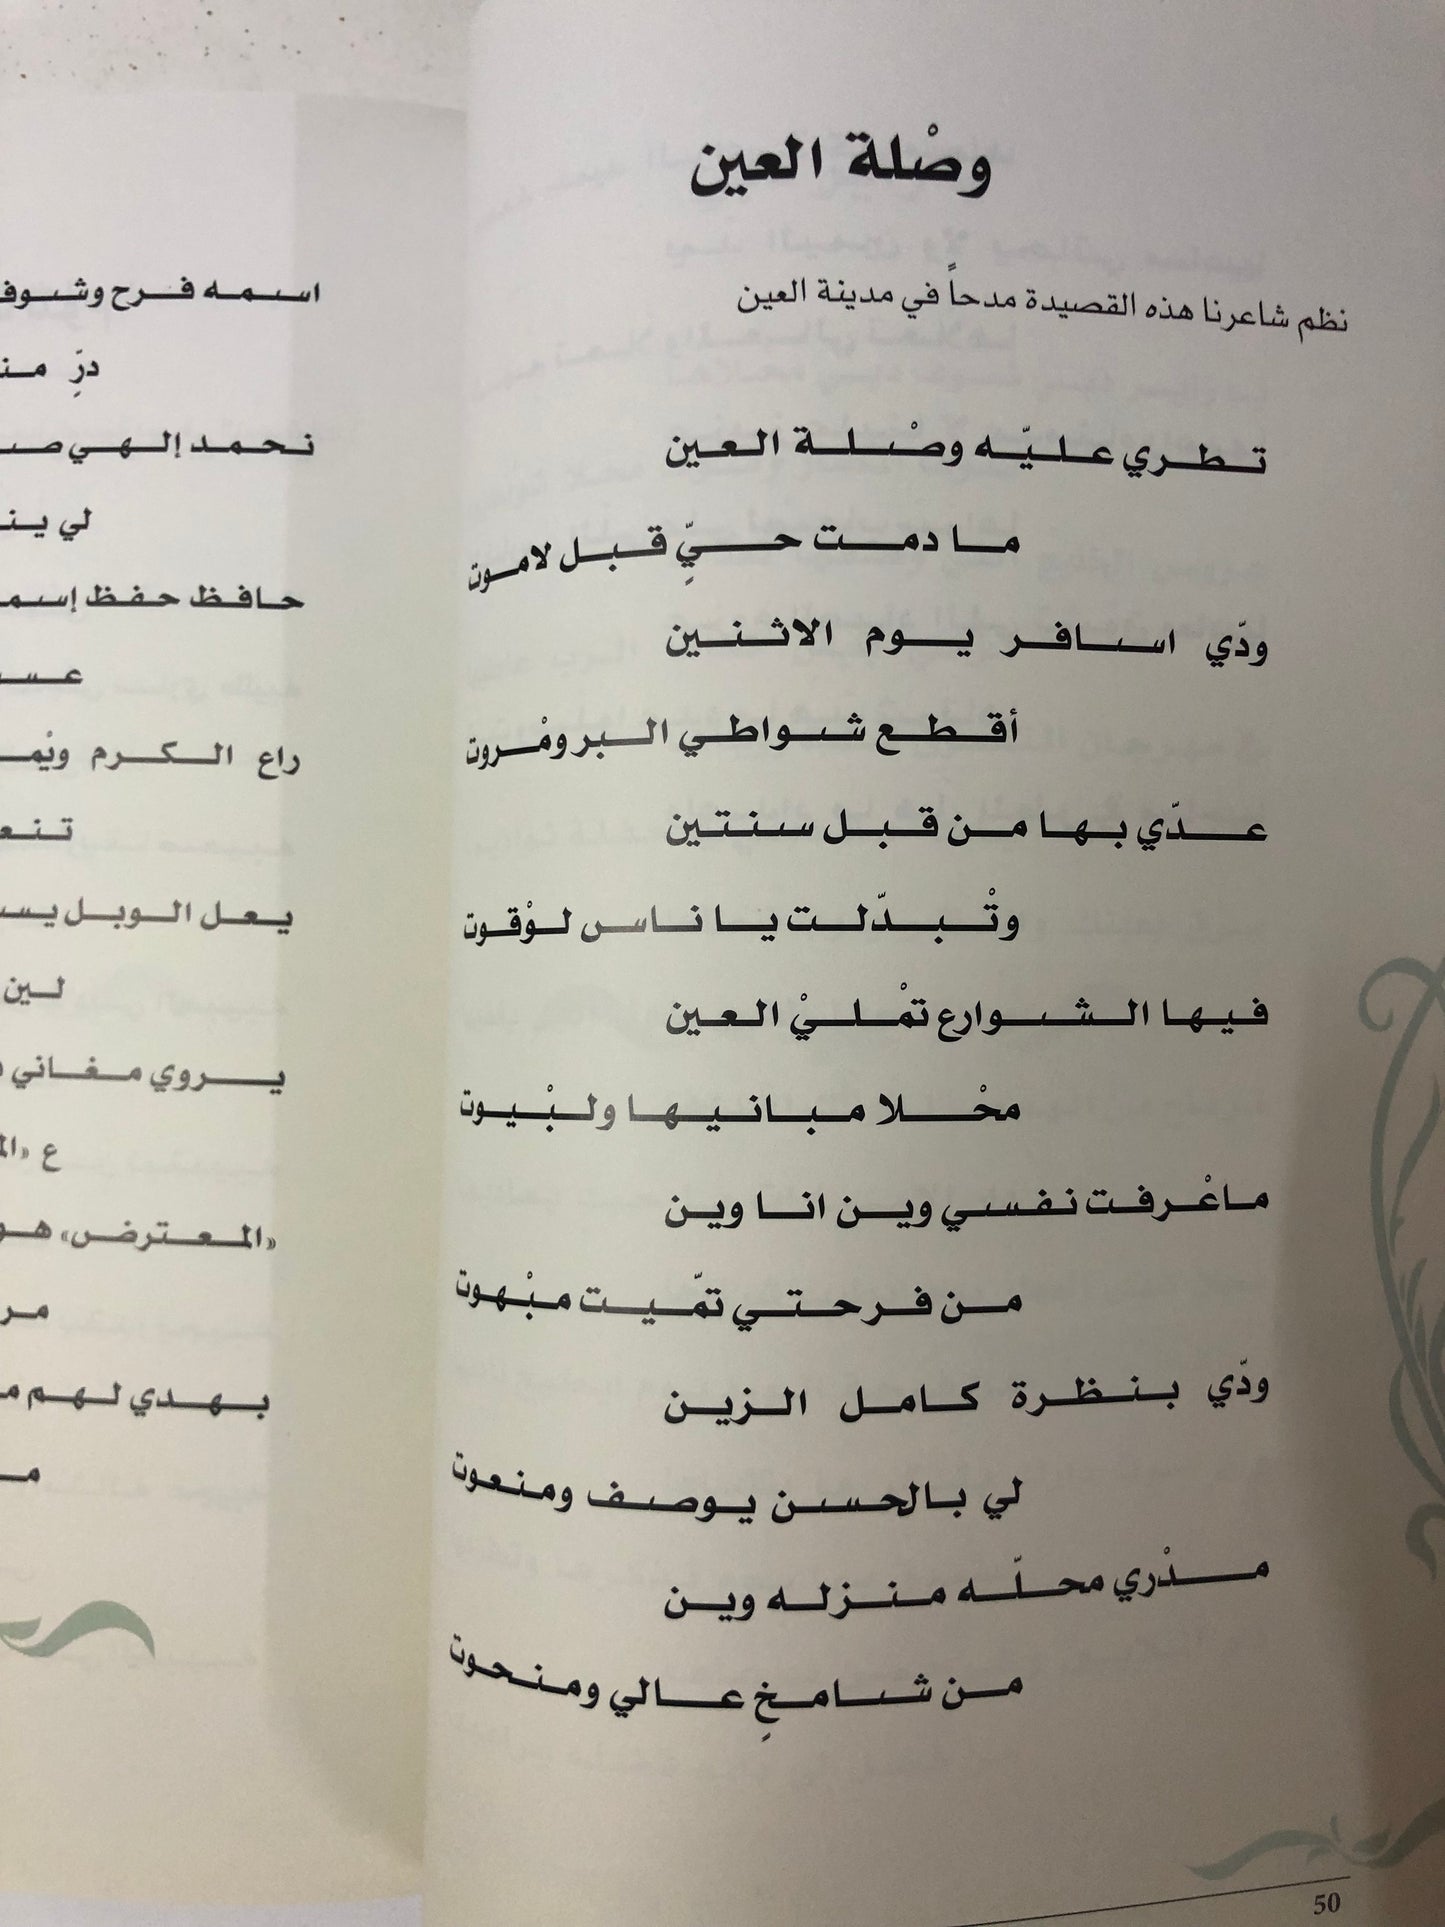 وصْلة العين
نظم شاعرنا هذه القصيدة مدحاً في مدينة العين
تطري عليّه وصْلة العين
ما دمت حيٍّ قبل لاموت
ودّي اسافر يوم الاثنين
أقطع شواطي البر ومْروت
عدّي بها من قبل سنتين
وتْبدّلت يا ناس لوْقوت
فيها الشوارع تمْليْ العين
محْلا مبانيها ولبْيوت
ماعْرفت نفسي وين انا وين
من فرحتي تمّيت مبْهوت
ودّي بنظرة كامل الزين
لي بالحسن يوصف ومنعوت
مدْري محلّه منزله وين
من شامخٍ عالي ومنحوت
50
اسمه فرح وشوف
درِّ
نحمد إلهي
لي
حافظ حفظ
راع الكرم
يعل الوبل
لين
يروي مغاني
ع
«المعترض»
بهدي لهم